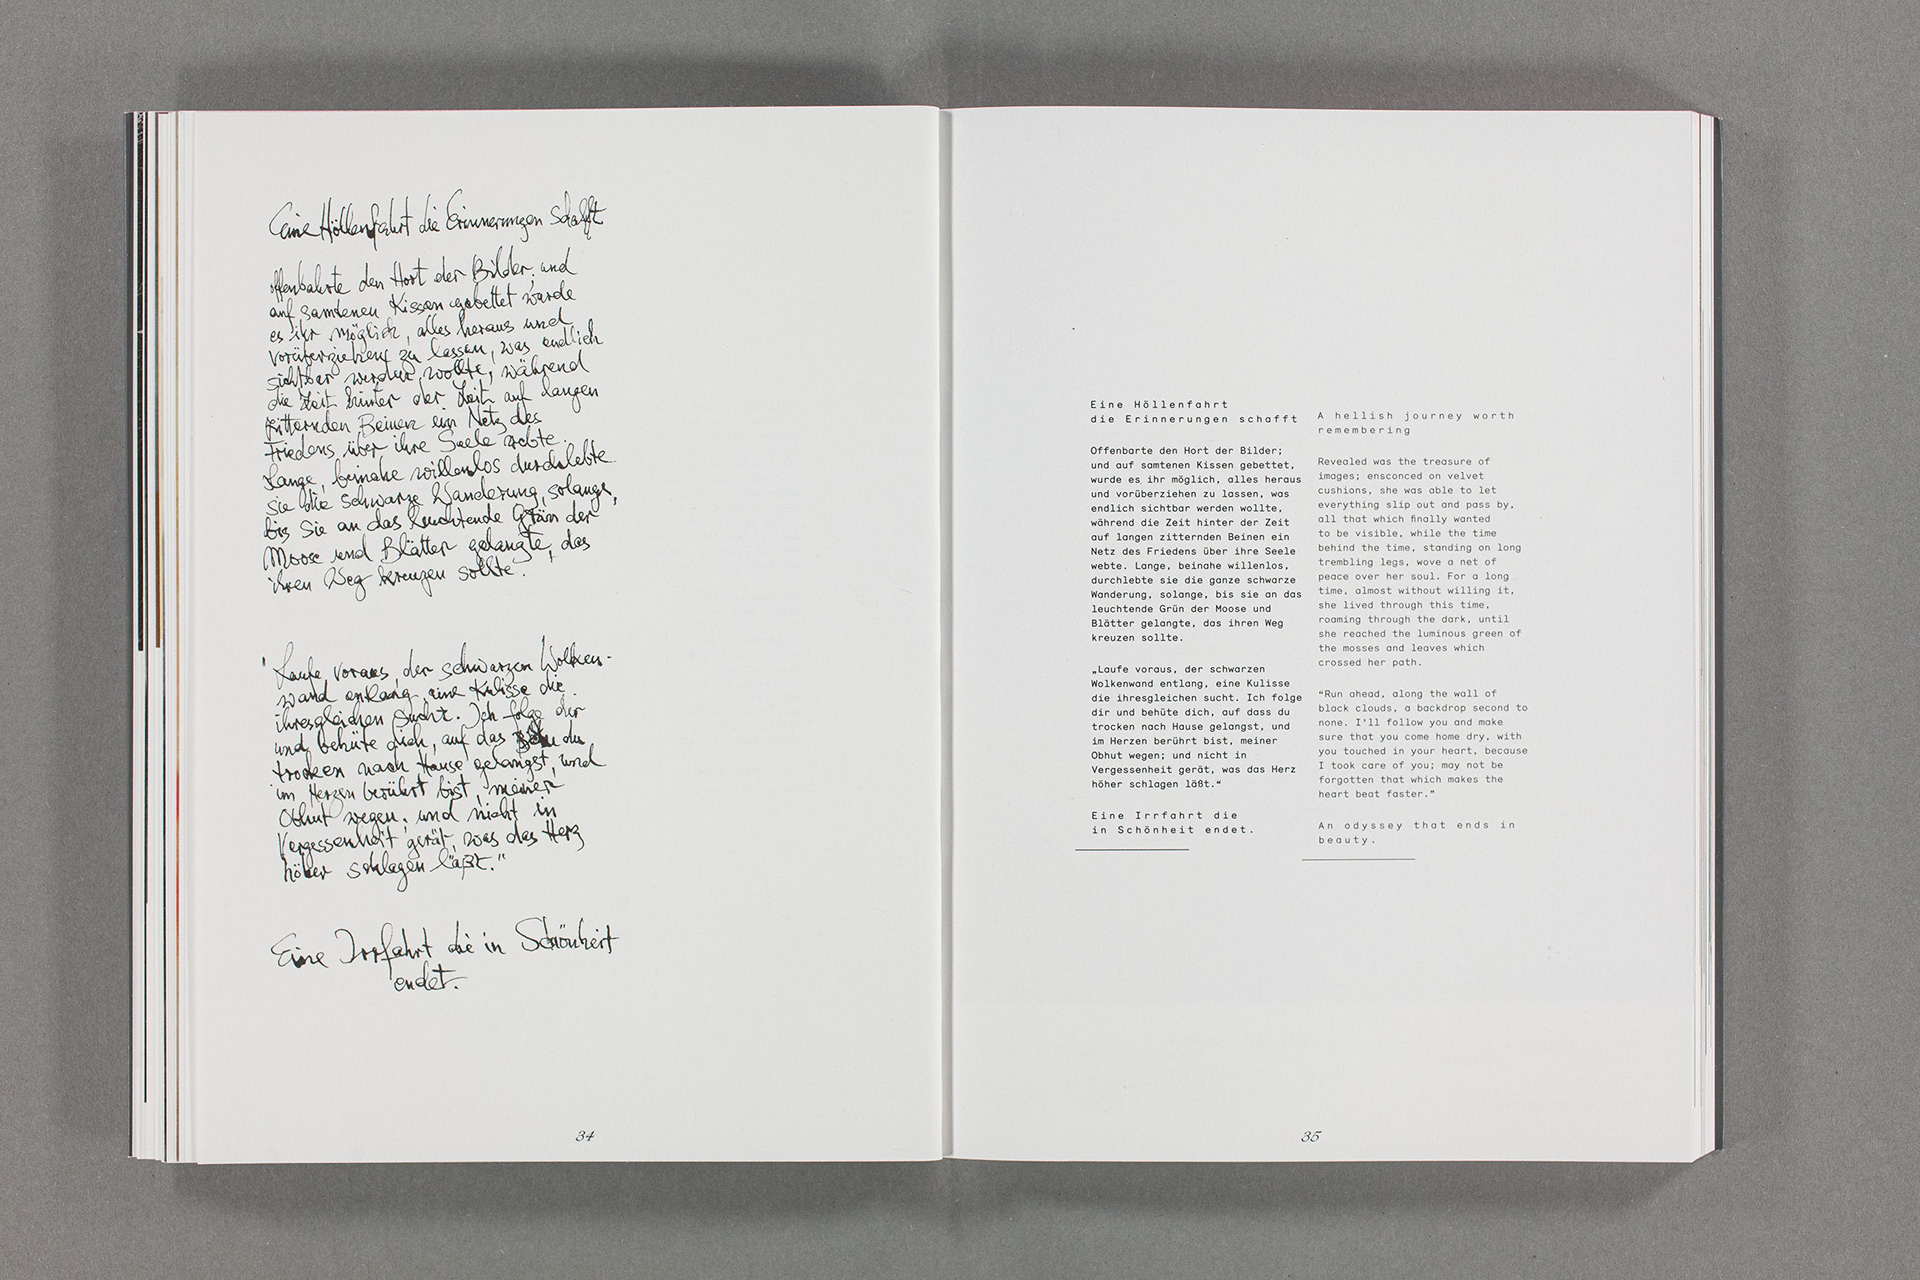 Eine Höllenfahrt die Erinnerungen schafft
offenbahrte den Hort der Bilder; und
auf samtenen Kissen gebettet wurde
es ihr möglich, alles heraus und
vorüberziehen zu lassen, was endlich
sichtbar werden wollte, während
die Zeit hinter der Zeit auf langen
zitternden Beinen ein Netz des
Friedens über ihre Seele webte.
Lange, beinahe willenlos durchlebte
sie die schwarze Wanderung, solange,
bis Sie an das leuchtende Grün der
Moose und Blätter gelangte, das
ihren Weg kreuzen sollte.
"Laufe voraus, der schwarzen Wolken-
wand entlang, eine Kulisse die
ihresgleichen sucht. Ich folge dir
und behüte dich, auf das du
trocken nach Hause gelangst, und
im Herzen berührt bist, meiner
Obhut wegen; und nicht in
Vergessenheit gerät, was das Herz
höher schlagen läßt."
Eine Irrfahrt die in Schönheit
endet.
34
Eine Höllenfahrt
die Erinnerungen schafft
Offenbarte den Hort der Bilder;
und auf samtenen Kissen gebettet,
wurde es ihr möglich, alles heraus
und vorüberziehen zu lassen, was
endlich sichtbar werden wollte,
während die Zeit hinter der Zeit
auf langen zitternden Beinen ein
Netz des Friedens über ihre Seele
webte. Lange, beinahe willenlos,
durchlebte sie die ganze schwarze
Wanderung, solange, bis sie an das
leuchtende Grün der Moose und
Blätter gelangte, das ihren Weg
kreuzen sollte.
„Laufe voraus, der schwarzen
Wolkenwand entlang, eine Kulisse
die ihresgleichen sucht. Ich folge
dir und behüte dich, auf dass du
trocken nach Hause gelangst, und
im Herzen berührt bist, meiner
Obhut wegen; und nicht in
Vergessenheit gerät, was das Herz
höher schlagen läßt.“
Eine Irrfahrt die
in Schönheit endet.
A hellish journey worth
remembering
Revealed was the treasure of
images; ensconced on velvet
cushions, she was able to let
everything slip out and pass by,
all that which finally wanted
to be visible, while the time
behind the time, standing on long
trembling legs, wove a net of
peace over her soul. For a long
time, almost without willing it,
she lived through this time,
roaming through the dark, until
she reached the luminous green of
the mosses and leaves which
crossed her path.
“Run ahead, along the wall of
black clouds, a backdrop second to
none. I'll follow you and make
sure that you come home dry, with
you touched in your heart, because
I took care of you; may not be
forgotten that which makes the
heart beat faster.”
An odyssey that ends in
beauty.
35